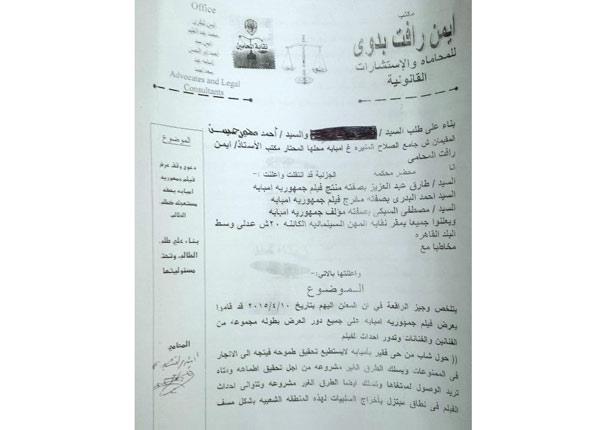 مكتب
ايمن رافت بدوى
للمحاماه والإستشارات
القانونية
Office
نقابة المحامين
Advocates and Legal
Consultants
الموضوع
دعوى وقف عرض
فيلم جمهوريه
امبابه بصفه
مستعجله طلب
الطالب
بناء على طلب
الطالب وتحت
مسئوليتها
المحامي
بناء على طلب السيد / والسيد / أحمد
المقيمان ش جامع الصلاح المنيره غ امبابه محلها المختار مكتب الأستاذ/ ايمن
رافت المحامى
انا محضر محكمه الجزئية قد انتقلت واعلنت :
السيد / طارق عبد العزيز بصفته منتج فيلم جمهوريه امبابه
السيد / احمد البدرى بصفته مخرج فيلم جمهوريه امبابه
السيد / مصطفى السبكى بصفته مؤلف جمهوريه امبابه
ويعلنوا جميعا بمقر نقابه المهن السينمائيه الكائنه ٢٠ش عدلى وسط
البلد القاهره
مخاطبا مع
واعلنتها بالاتى:-
الـمـوضـوع
يتلخص وجيز الواقعة فى ان المعلن اليهم بتاريخ ٢٠١٥/٤/١٠ قد قاموا
بعرض فيلم جمهوريه امبابه على جميع دور العرض بطوله مجموعه من
الفنانين والفنانات وتدور احداث الفيلم
(( حول شاب من حى فقير بأمبابه لايستطيع تحقيق طموحه فيتجه الى الاتجار
فى الممنوعات ويسلك الطرق الغير مشروعه من اجل تحقيق اطماعه وفتاه
تريد الوصول لمبتغاها وتسلك ايضا الطرق الغير مشروعه وتتوالى احداث
الفيلم فى نطاق مبتذل بأخراج السلبيات لهذه المنطقه الشعبيه بشكل مسف